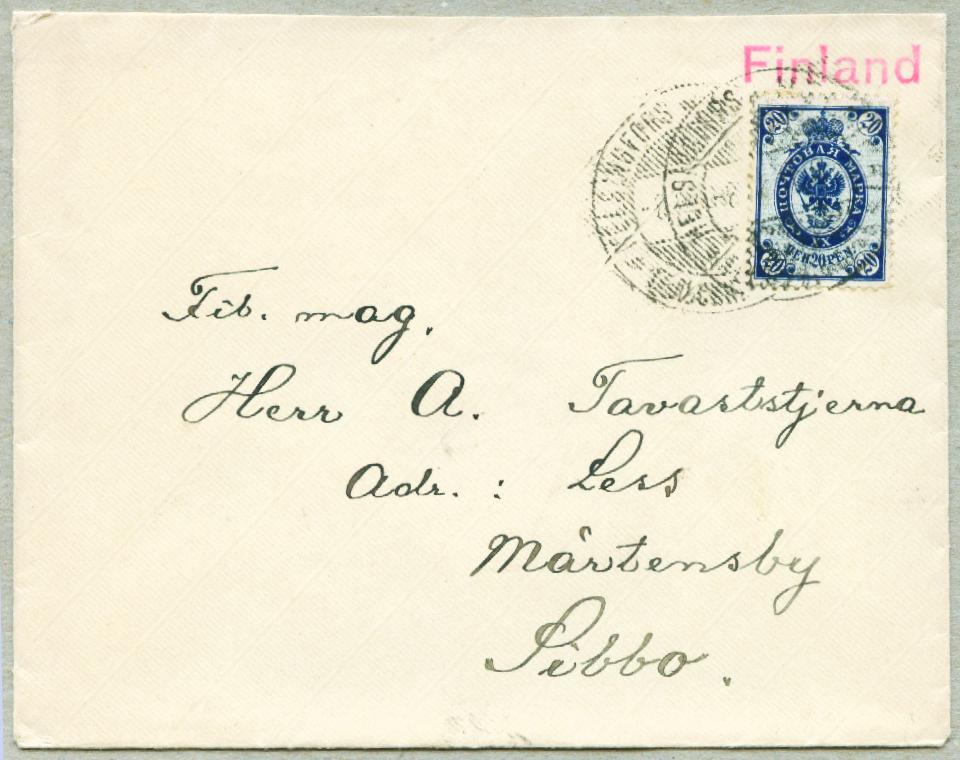 Finland
HELSINGFORS
20 20
ПОЧТОВАЯ МАРКА
XX
ПЕН 20 PEN
20 20
Fil. mag.
Herr A. Tavaststjerna
Adr. : Less
Mårtensby
Sibbo.